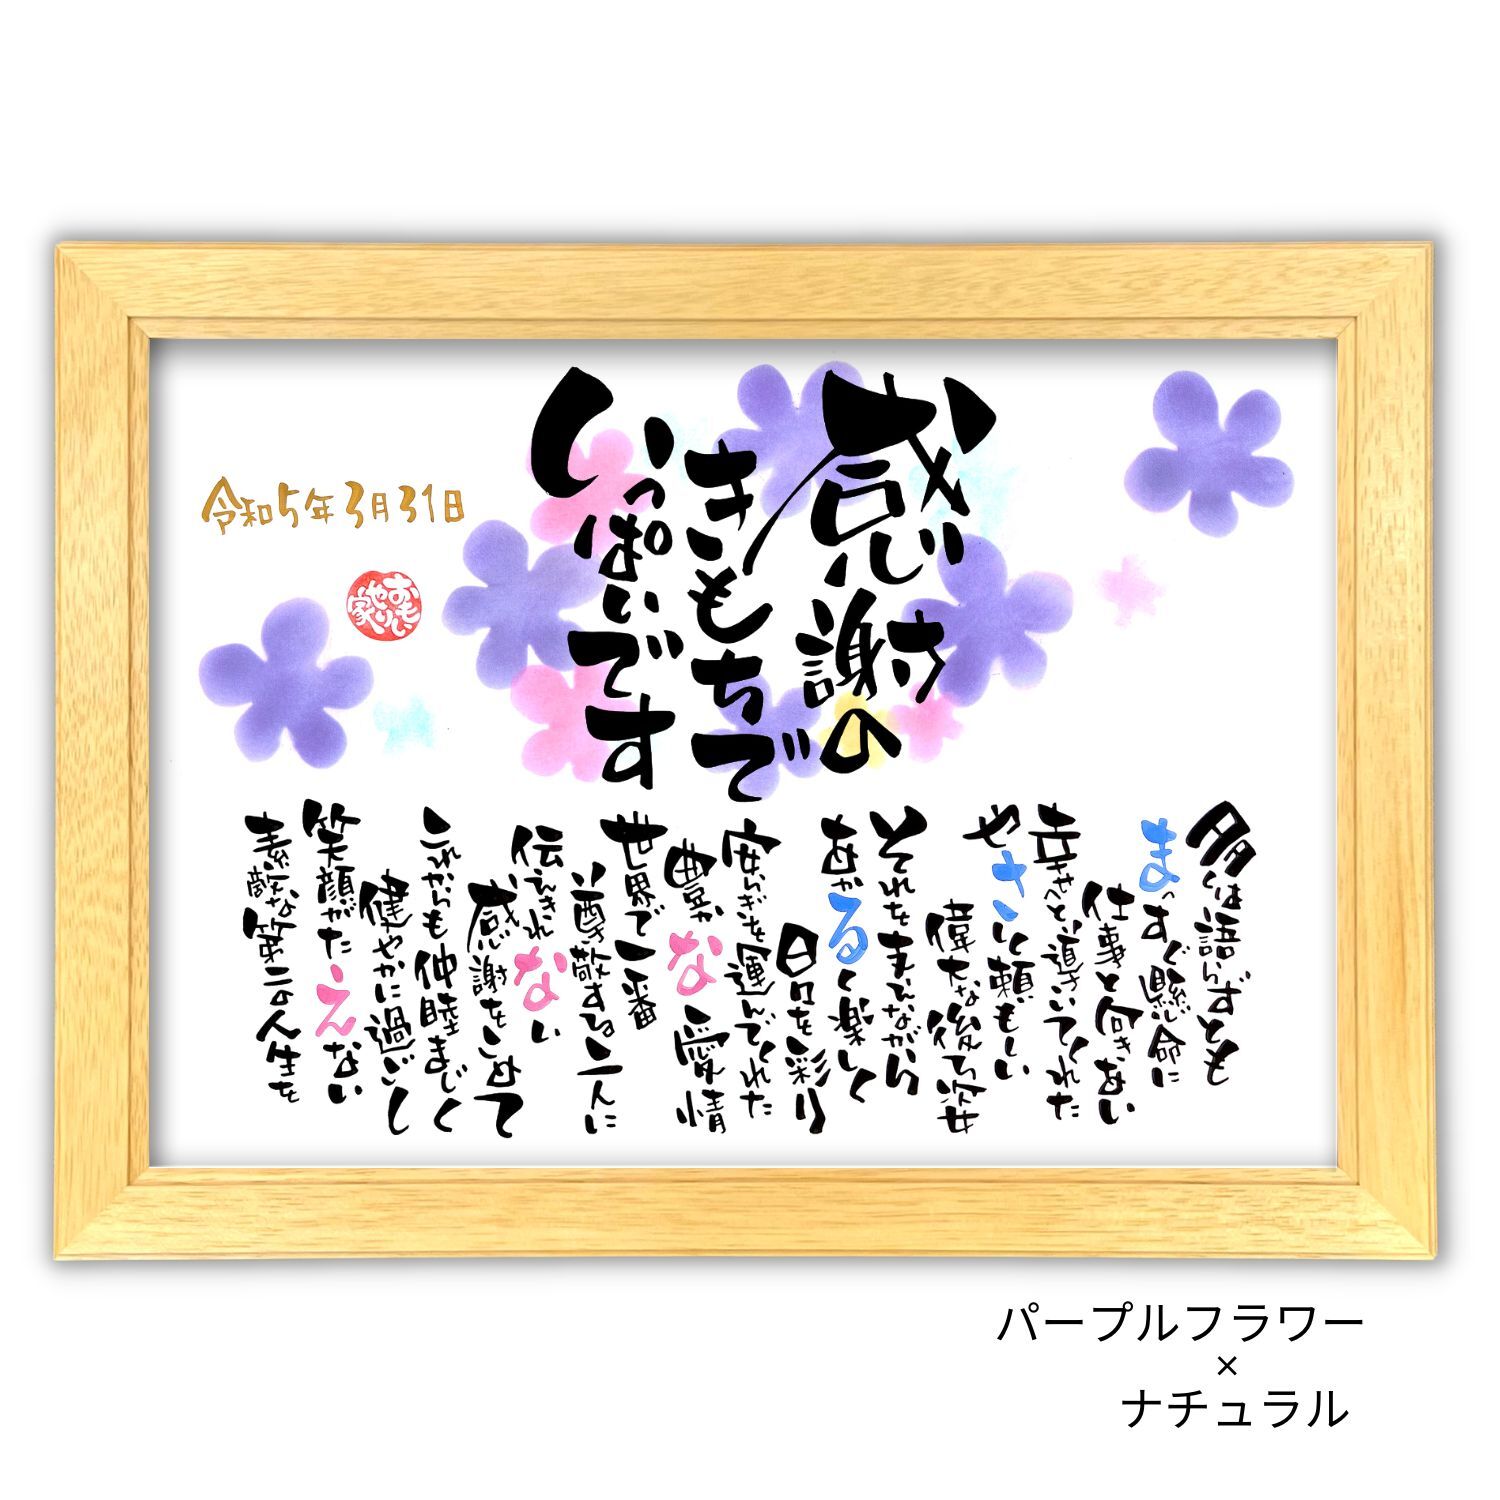 感謝の
きもちで
いっぱいです
多くは語らずとも
まっすぐ懸命に
仕事と向きあい
幸せへと導いてくれた
やさしく頼もしい
偉大な後ろ姿
それをまもりながら
あかるく楽しく
日々を彩り
安らぎを運んでくれた
豊かな愛情
世界で一番
尊敬する二人に
伝えきれない
感謝をこめて
これからも仲睦まじく
健やかに過ごし
笑顔がたえない
素敵な第二の人生を
令和5年3月31日
おもい
やり
家
パープルフラワー
×
ナチュラル